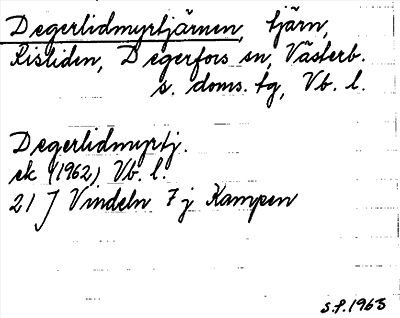 Degerlidmyrtjärnen, tjärn,
Risliden, Degerfors sn, Västerb.
s. doms. tg, Vb. l.
Degerlidmyrtj.
ek (1962) Vb. l.
21 J Vindeln 7 j Kampen
S.P. 1963